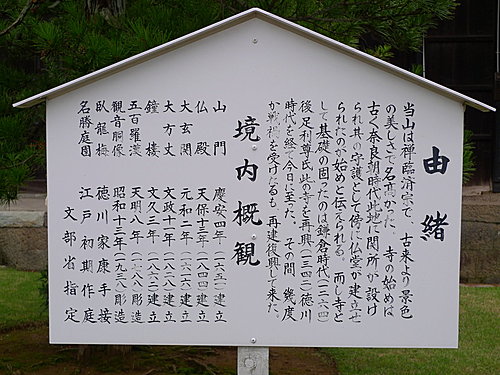 由緒
当山は禅臨済宗で、古来より景色
の美しさで名高かった。寺の始めは
古く奈良朝時代此地に関所が設け
られ其の守護として傍に仏堂が建立せ
られたのが始めと伝えられる。而し寺と
して基礎の固ったのは鎌倉時代(一二六四)
後足利尊氏此の寺を再興(一三四二)徳川
時代を経て今日に至った。その間、幾度
か戦禍を受けたるも、再建復興して来た。
境内概観
山門 慶安四年(一六五一)建立
仏殿 天保十三年(一八四二)建立
大玄関 元和二年(一六一六)建立
大方丈 文政八年(一八二五)建立
鐘楼 文久三年(一八六三)建立
五百羅漢 天明八年(一七八八)彫造
観音胴像 昭和十三年(一九三八)彫造
臥龍梅 徳川家康手接
名勝庭園 江戸初期作庭
文部省指定